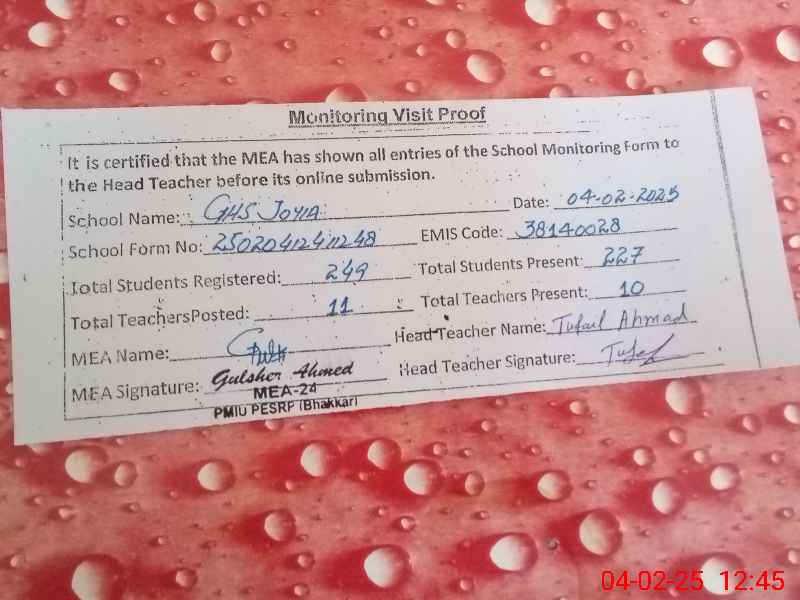 Monitoring Visit Proof
It is certified that the MEA has shown all entries of the School Monitoring Form to
the Head Teacher before its online submission.
School Name: GHS JOYIA Date: 04-02-2025
School Form No: 25020412411248 EMIS Code: 38140028
Total Students Registered: 249 Total Students Present: 227
Total TeachersPosted: 11 Total Teachers Present: 10
MEA Name: Head Teacher Name: Tufail Ahmad
MEA Signature: Gulsher Ahmed Head Teacher Signature:
MEA-24
PMIU PESRP (Bhakkar)
04-02-25 12:45